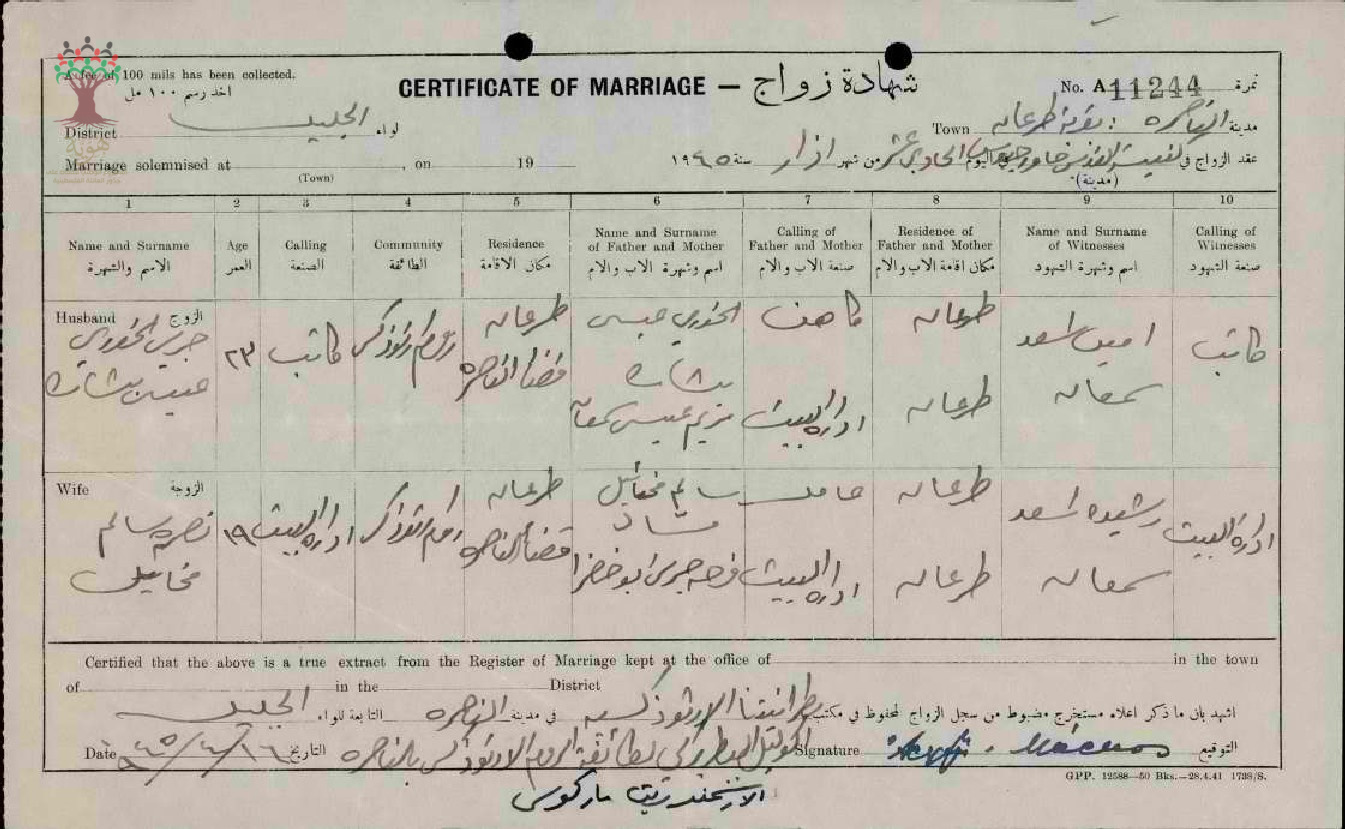 A fee of 100 mils has been collected.
اخذ رسم ١٠٠ مل
CERTIFICATE OF MARRIAGE — شهادة زواج
No. A 11244 نمرة
District الجليل لواء
Town الناصره : قرية طرعان مدينة
Marriage solemnised at , on 19
(Town)
عقد الزواج في كنيسة القديس جاورجيوس اليوم الحادي عشر من شهر اذار سنة ١٩٤٥
(مدينة)
1 2 3 4 5 6 7 8 9 10
Name and Surname الاسم والشهرة
Age العمر
Calling الصنعة
Community الطائفة
Residence مكان الاقامة
Name and Surname of Father and Mother اسم وشهرة الاب والام
Calling of Father and Mother صنعة الاب والام
Residence of Father and Mother مكان اقامة الاب والام
Name and Surname of Witnesses اسم وشهرة الشهود
Calling of Witnesses صنعة الشهود
Husband الزوج
جريس الخوري
عيسى بشاره
٢٣
كاتب
روم ارثوذكس
طرعان
قضاء الناصره
الخوري عيسى
بشاره
مريم عيسى سمعان
كاهن
ادارة البيت
طرعان
طرعان
امين اسعد
سمعان
كاتب
Wife الزوجة
نصره سالم
مخايل
١٩
ادارة البيت
روم ارثوذكس
طرعان
قضاء الناصره
سالم مخائيل
فرحه جريس ابو خضرا
عامل
ادارة البيت
طرعان
طرعان
رشيده اسعد
سمعان
ادارة البيت
Certified that the above is a true extract from the Register of Marriage kept at the office of in the town
of in the District
اشهد بان ما ذكر اعلاه مستخرج مضبوط من سجل الزواج المحفوظ في مكتب مطرانيتنا الارثوذكسيه في مدينة الناصره التابعة للواء الجليل
Date ١٦/٤/٩٤٥ التاريخ
الوكيل البطريركي لطائفة الروم الارثوذكس بالناصره
Signature التوقيع
الارشمندريت ماركوس
GPP. 12588—50 Bks.—28.4.41 1738/S.
هوية